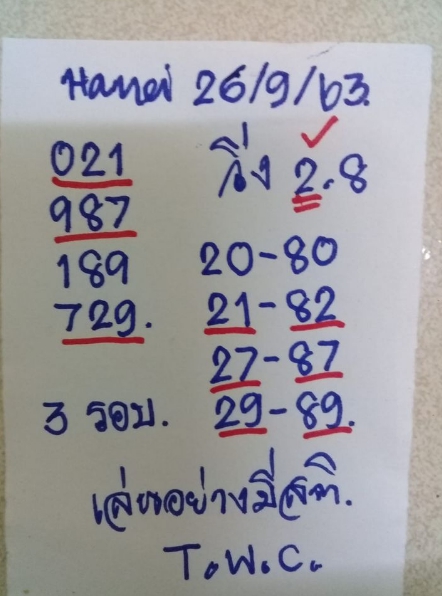 Hanoi 26/9/63.
021
987
189
729.
3 รอบ.
วิ่ง 2.8
20-80
21-82
27-87
29-89.
เล่นอย่างมีสติ.
T.W.C.